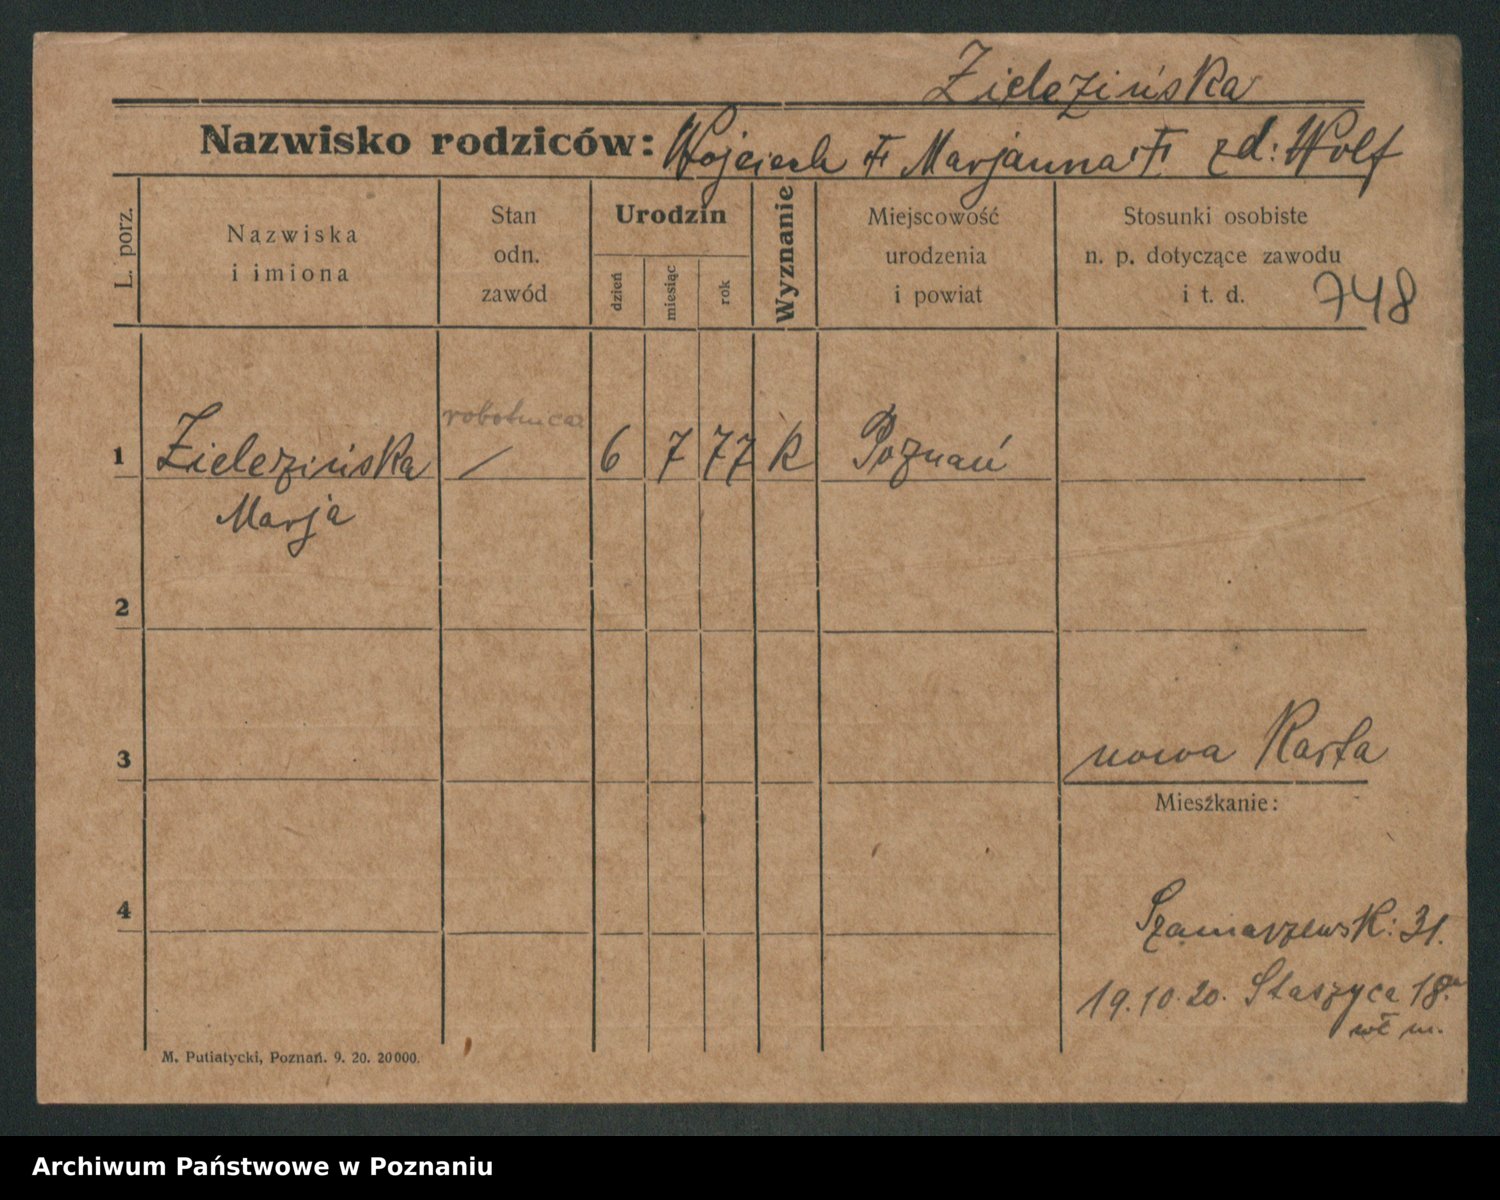 Zielezińska
Nazwisko rodziców: Wojciech Marjanna zd: Wolf
L. porz.
Nazwiska
i imiona
Stan
odn.
zawód
Urodzin
dzień
miesiąc
rok
Wyznanie
Miejscowość
urodzenia
i powiat
Stosunki osobiste
n. p. dotyczące zawodu
i t. d.
748
robotnica
1 Zielezińska / 6 7 77 k Poznań
Marja
2
3
nowa Karta
Mieszkanie:
4
Szamarzewsk: 31.
19.10.20. Staszyca 18.
m.
M. Putiatycki, Poznań. 9. 20. 20000.
Archiwum Państwowe w Poznaniu